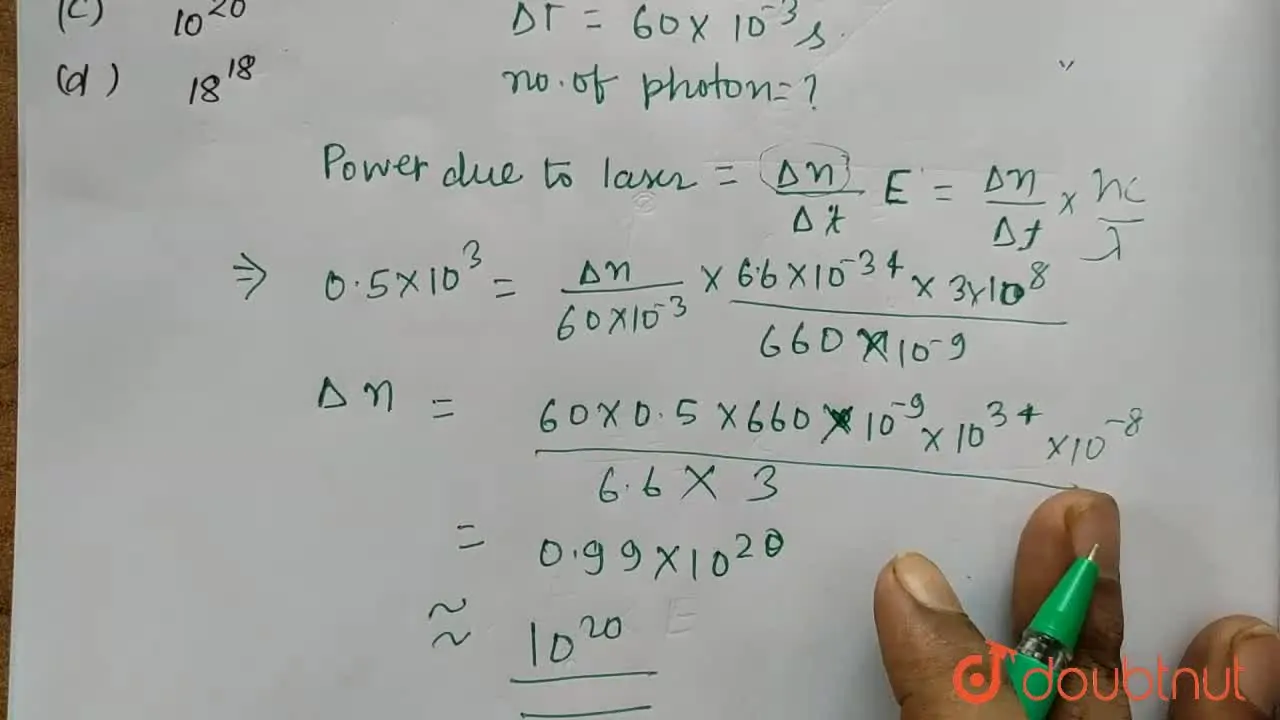 (c) 10²⁰ ΔT = 60 × 10⁻³ s.
(d) 18¹⁸ no. of photon = ?
Power due to laser = Δn/Δt E = Δn/Δt × hc/λ
⇒ 0.5×10³ = Δn/60×10⁻³ × 6.6×10⁻³⁴ × 3×10⁸/660×10⁻⁹
Δn = 60×0.5×660×10⁻⁹×10³⁴×10⁻⁸/6.6×3
= 0.99×10²⁰
≈ 10²⁰
doubtnut